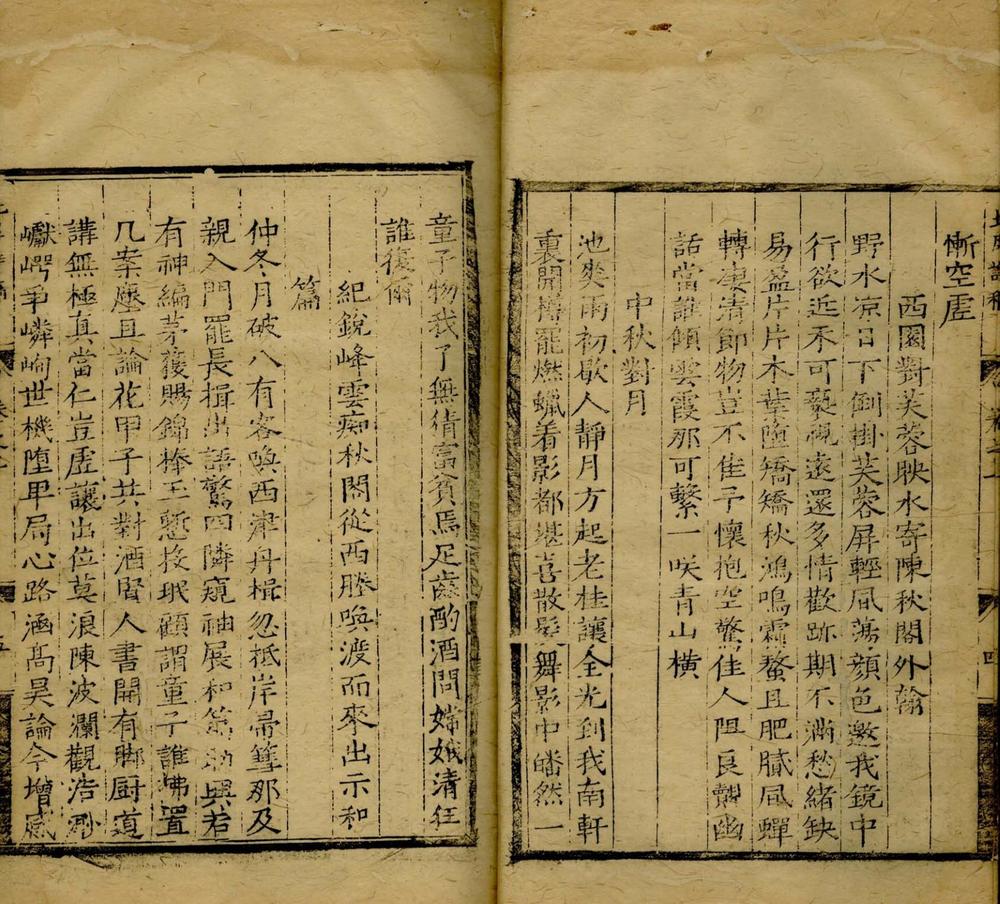 慚空虛
西園對芙蓉映水寄陳秋閣外翰
野水凉日下倒掛芙蓉屏輕風蕩顔色邀我鏡中
行欲近禾可褻視遠還多情歡跡期不滿愁緒缺
易盈片片木葉墮矯矯秋鴻鳴霜螯且肥膩風蟬
轉凄清節物豈不佳予懷抱空驚佳人阻良覿幽
話當誰傾雲霞那可繫一咲青山橫
中秋對月
池奕雨初歇人靜月方起老桂讓全光到我南軒
裏開樽罷燃蠟着影都堪喜散髮舞影中皤然一
童子物我了無猜富貧焉足齒酌酒問嫦娥清狂
誰復爾
紀銳峰雲痴秋閣從西塍喚渡而來出示和
篇
仲冬月破八有客喚西津舟楫忽抵岸帚篲那及
親入門罷長揖出語驚四隣窺神展和
興若
有神編茅獲賜錦捧玉慙投珉顧謂童子誰拂置
几案塵且論花甲子共對酒賢人書開有脚厨直
講無極真當仁豈虛讓出位莫浪陳波瀾觀浩渺
巘崿爭嶙峋世機墮甲局心路涵高旻論今增感